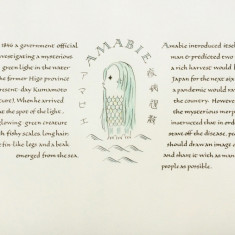 AMABIE
アマビエ
疫病退散
1846 a government official
investigating a mysterious
green light in the water
the former Higo province
present day Kumamoto
When he arrived
the spot of the light,
glowing green creature
fishy scales, long hair,
fin-like legs and a beak
emerged from the sea.
Amabie introduced itself
man & predicted two
a rich harvest would
Japan for the next six
a pandemic would
the country. However
the mysterious
instructed that in order
stave off the disease,
should draw an image
and share it with as many
people as possible.